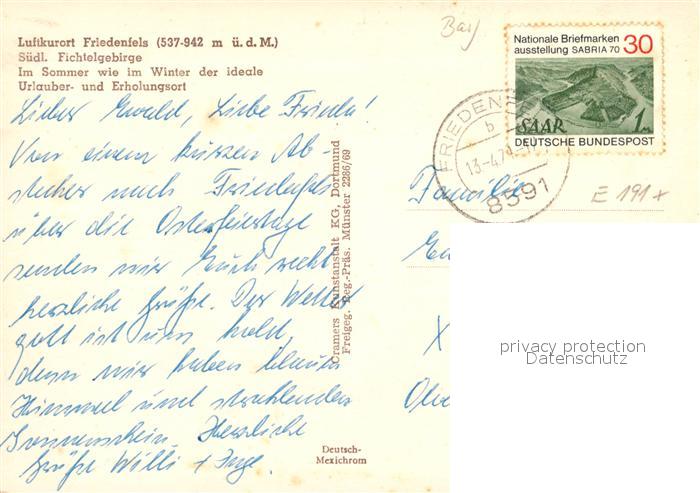 Luftkurort Friedenfels (537-942 m ü. d. M.)
Südl. Fichtelgebirge
Im Sommer wie im Winter der ideale
Urlauber- und Erholungsort
Lieber Ewald, Liebe Frieda!
Von einem kurzen Ab-
stecher nach Friedenfels
über die Osterfeiertage
senden wir Euch recht
herzliche Grüße. Der Wetter
gott ist uns hold,
denn wir haben blauen
Himmel und strahlenden
Sonnenschein. Herzliche
Grüße Willi + Inge.
Cramers Kunstanstalt KG, Dortmund
Freigeg. Reg.-Präs. Münster 2286/69
Deutsch-
Mexichrom
Bay
Nationale Briefmarken
ausstellung SABRIA 70
30
SAAR 1
DEUTSCHE BUNDESPOST
b
8591
Familie
E 191x
privacy protection
Datenschutz